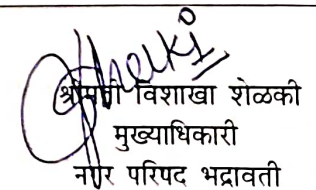 श्रीमती विशाखा शेळकी
मुख्याधिकारी
नगर परिषद भद्रावती